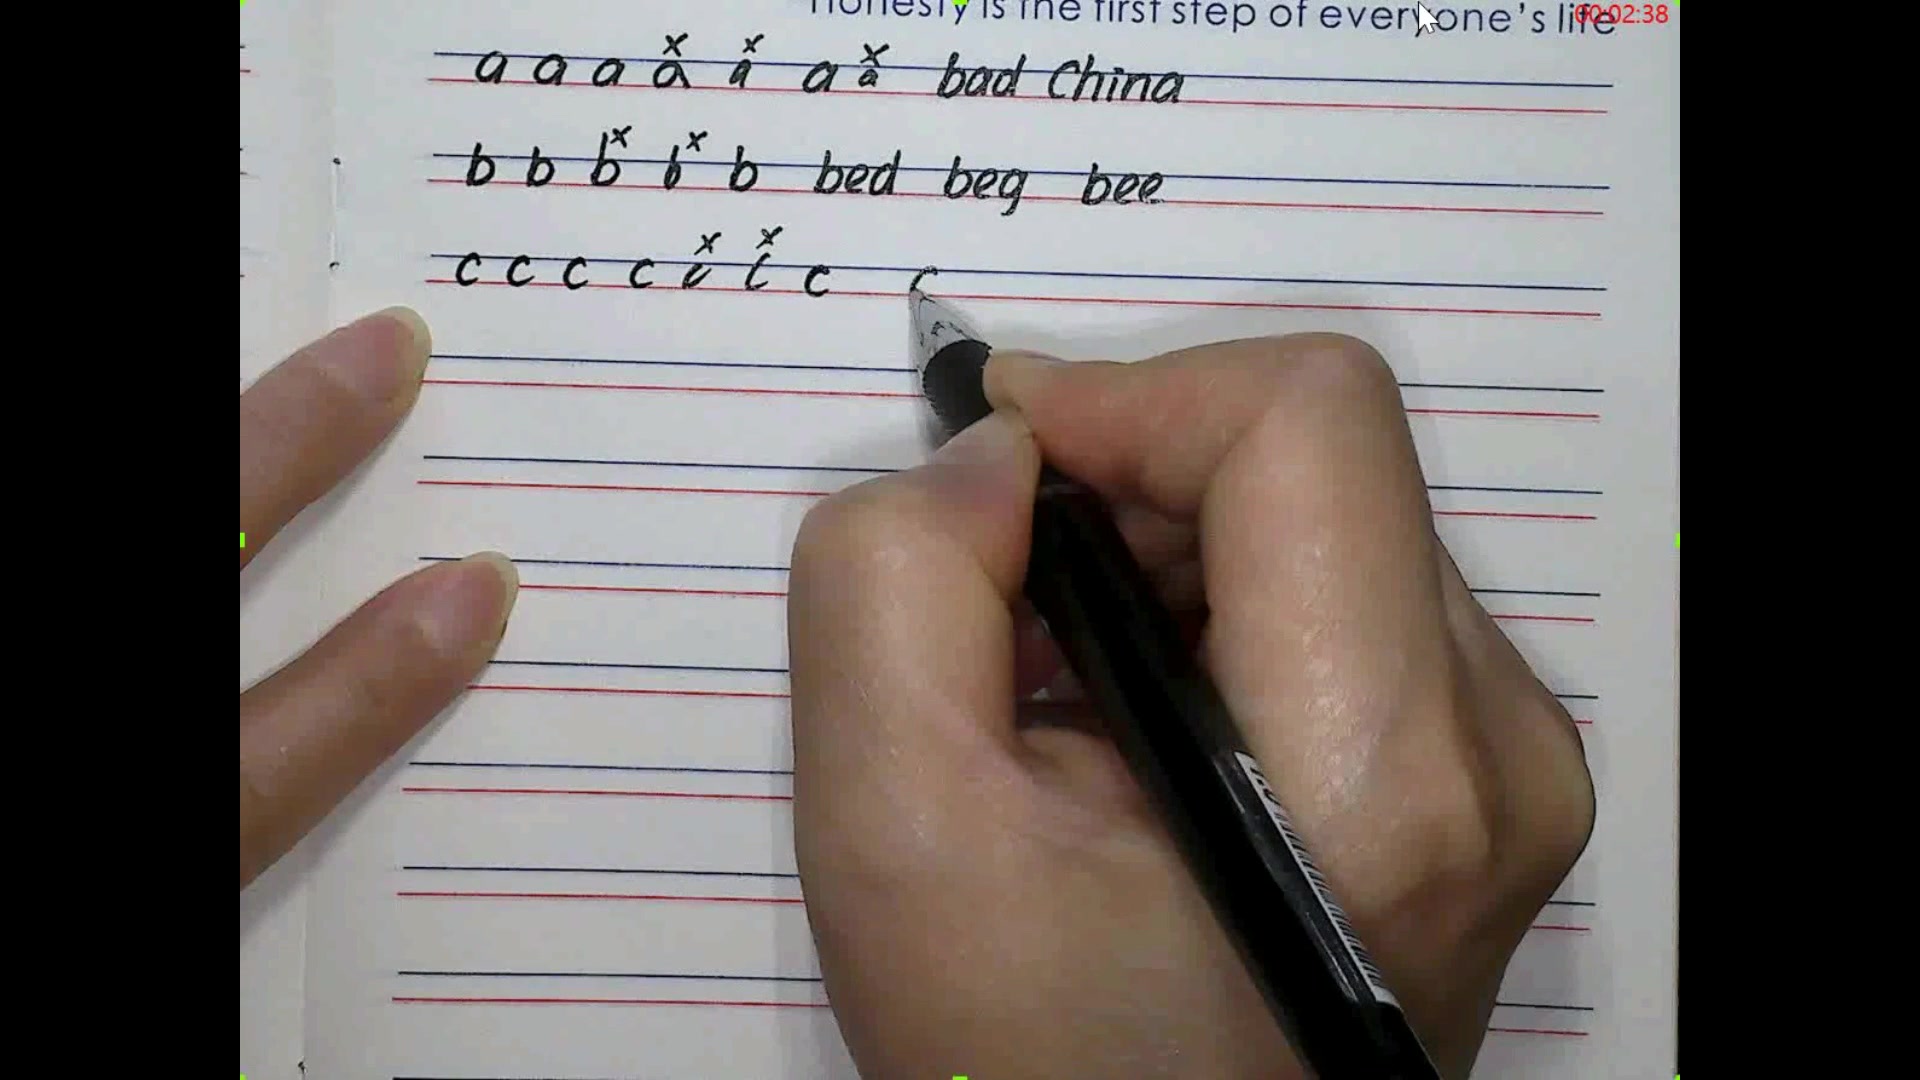 Honesty is the first step of everyone's life
00:02:38
a a a a a a a bad China
b b b b b bed beg bee
c c c c c c c c